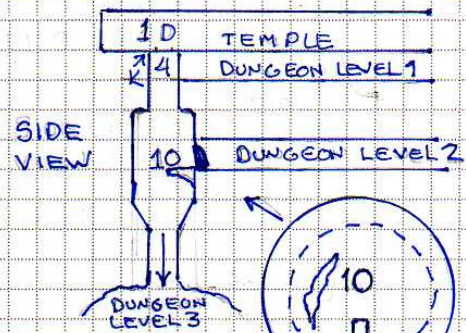 1 D
TEMPLE
K 4
DUNGEON LEVEL 1
SIDE
VIEW
10
DUNGEON LEVEL 2
10
DUNGEON
LEVEL 3